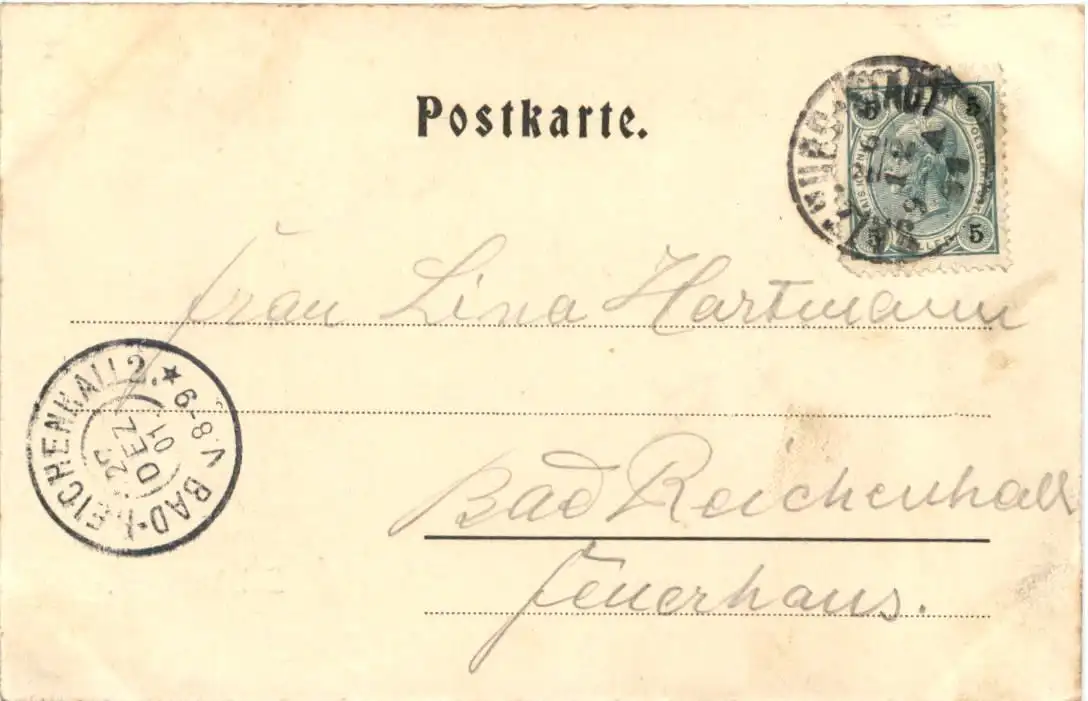 Postkarte.
5 5
5 5
Frau Lina Hartmann
BAD-REICHENHALL 2. ★
V. 8-9
25
DEZ
01.
Bad Reichenhall
Feuerhaus.